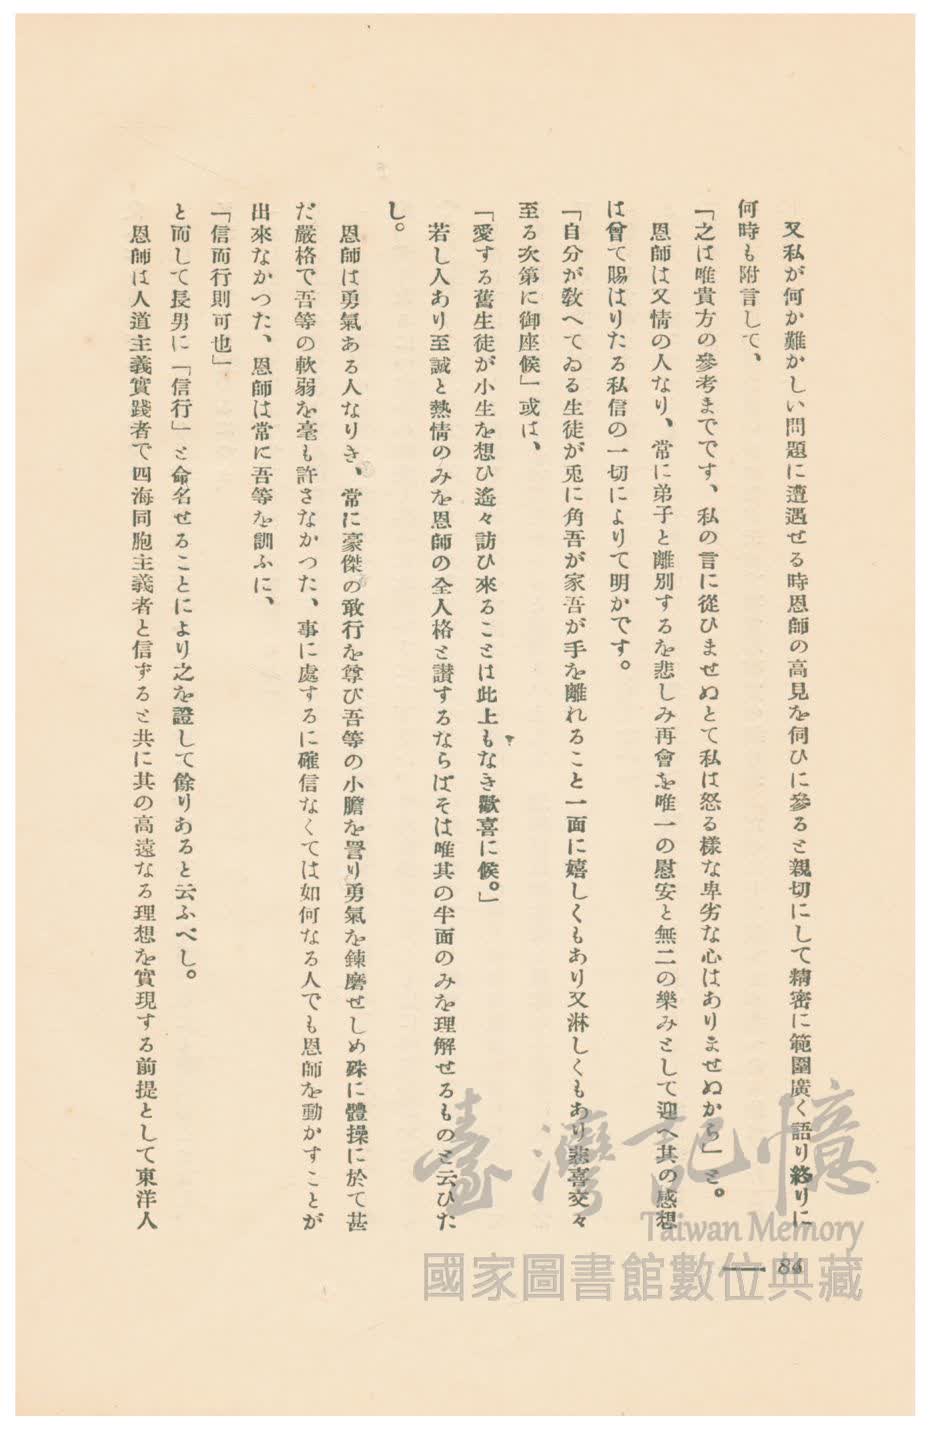 又私が何か難かしい問題に遭遇せる時恩師の高見を伺ひに參ると親切にして精密に範圍廣く語り終りに
何時も附言して、
「之は唯貴方の參考までです、私の言に從ひませぬとて私は怒る樣な卑劣な心はありませぬから」と。
恩師は又情の人なり、常に弟子と離別するを悲しみ再會を唯一の慰安と無二の樂みとして迎へ其の感想
は曾て賜はりたる私信の一切によりて明かです。
「自分が敎へてゐる生徒が兎に角吾が家吾が手を離れること一面に嬉しくもあり又淋しくもあり悲喜交々
至る次第に御座候」或は、
「愛する舊生徒が小生を想ひ遙々訪ひ來ることは此上もなき歡喜に候。」
若し人あり至誠と熱情のみを恩師の全人格と讃するならばそは唯其の半面のみを理解せるものと云ひた
し。
恩師は勇氣ある人なりき、常に豪傑の敢行を尊び吾等の小膽を詈り勇氣を鍊磨せしめ殊に體操に於て甚
だ嚴格で吾等の軟弱を毫も許さなかつた、事に處するに確信なくては如何なる人でも恩師を動かすことが
出來なかつた、恩師は常に吾等を訓ふに、
「信而行則可也」
と而して長男に「信行」と命名せることにより之を證して餘りあると云ふべし。
恩師は人道主義實踐者で四海同胞主義者と信ずると共に其の高遠なる理想を實現する前提として東洋人
84
臺灣記憶
Taiwan Memory
國家圖書館數位典藏